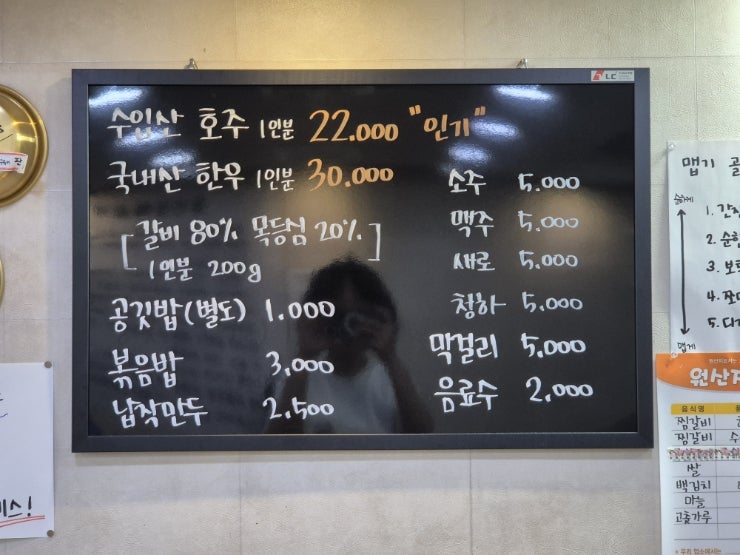 LC
수입산 호주 1인분 22.000 "인기"
국내산 한우 1인분 30.000
[갈비 80% 목등심 20%
1인분 200g]
공깃밥(별도) 1.000
볶음밥 3,000
납작만두 2,500
소주 5.000
맥주 5.000
새로 5.000
청하 5.000
막걸리 5,000
음료수 2,000
맵기
순하게
1. 간장
2. 순한
3. 보통
4.
5.
맵게
원산지
음식명
찜갈비
찜갈비 수
쌀
백김치
마늘
고춧가루